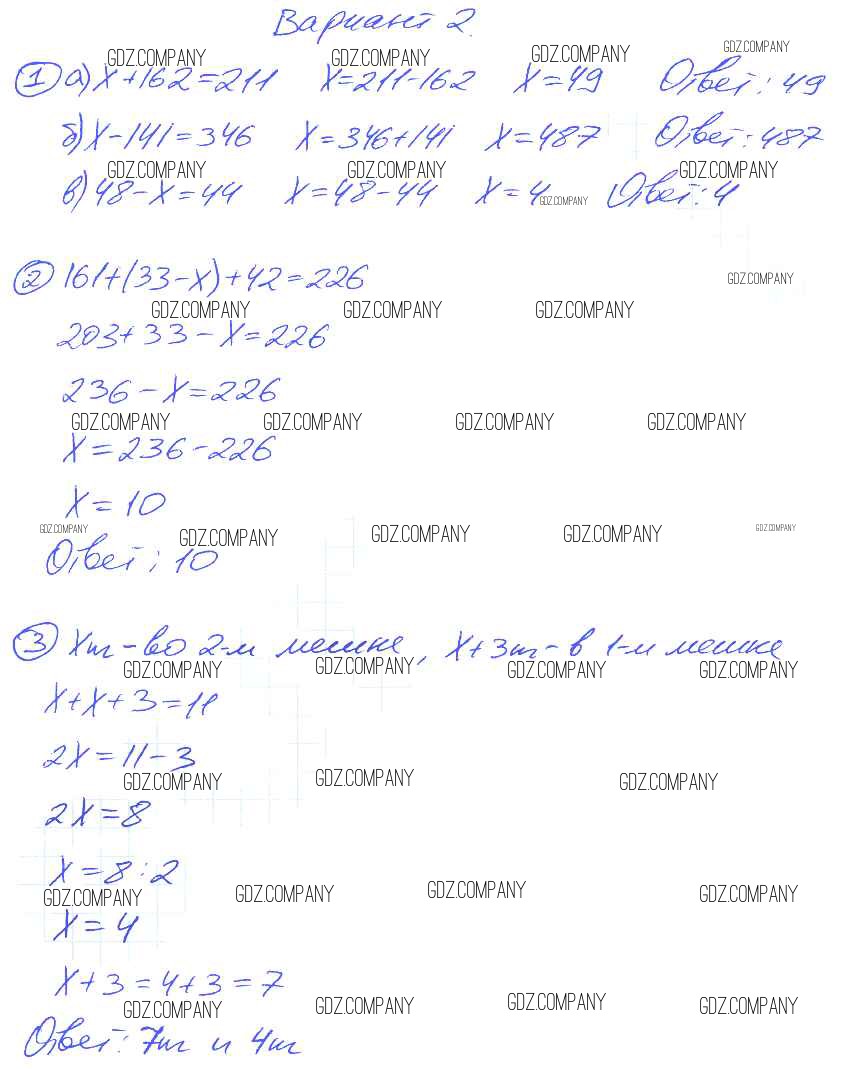 Вариант 2.
GDZ.COMPANY GDZ.COMPANY GDZ.COMPANY GDZ.COMPANY
1 а) x+162=211 x=211-162 x=49 Ответ: 49
б) x-141=346 x=346+141 x=487 Ответ: 487
GDZ.COMPANY GDZ.COMPANY GDZ.COMPANY
в) 48-x=44 x=48-44 x=4 GDZ.COMPANY Ответ: 4
2 161+(33-x)+42=226 GDZ.COMPANY
GDZ.COMPANY GDZ.COMPANY GDZ.COMPANY
203+33-x=226
236-x=226
GDZ.COMPANY GDZ.COMPANY GDZ.COMPANY GDZ.COMPANY
x=236-226
x=10
GDZ.COMPANY GDZ.COMPANY GDZ.COMPANY GDZ.COMPANY GDZ.COMPANY
Ответ: 10
3 xт-во 2-м мешке, x+3т-в 1-м мешке
GDZ.COMPANY GDZ.COMPANY GDZ.COMPANY GDZ.COMPANY
x+x+3=11
2x=11-3
GDZ.COMPANY GDZ.COMPANY GDZ.COMPANY
2x=8
x=8:2
GDZ.COMPANY GDZ.COMPANY GDZ.COMPANY GDZ.COMPANY
x=4
x+3=4+3=7
GDZ.COMPANY GDZ.COMPANY GDZ.COMPANY GDZ.COMPANY
Ответ: 7т и 4т